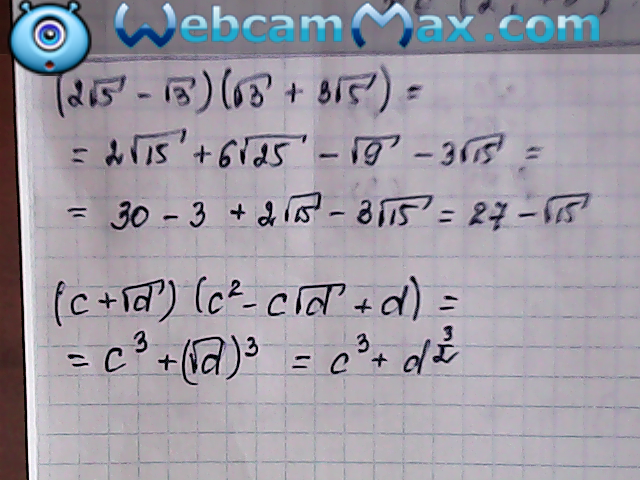 WebcamMax.com
(2√5 - √3)(√3 + 3√5) =
= 2√15 + 6√25 - √9 - 3√15 =
= 30 - 3 + 2√15 - 3√15 = 27 - √15
(c + √d) (c² - c√d + d) =
= c³ + (√d)³ = c³ + d^(3/2)